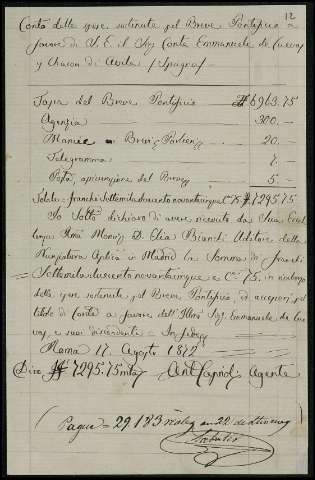 12
Conto delle spese sostenute pel Breve Pontificio a
favore di S. E. il Sig. Conte Emmanuele de
y Chacon di Avila (Spagna)
Tassa del Breve Pontificio 6963.75
Agenzia 300.—
Mancie 20.—
Telegramma 7.—
Posta, spedizione del Breve 5.—
Totale = franchi Settemiladuecento novantacinque 75 7295.75
Io Sotto dichiaro di avere ricevuto da Sua Eccel
lenza Monsig. D. Elia Bianchi Uditore della
Nunziatura Aplica in Madrid la Somma di franchi
Settemiladuecento novantacinque e C. 75. in rimborso
delle spese sostenute pel Breve Pontificio, di concessione pel
titolo di Conte a favore dell' Illmo Sig. Emmanuele de
e suoi discendenti = In fede
Roma 17. Agosto 1872
Dico 7295.75 Agente
29183 22 de